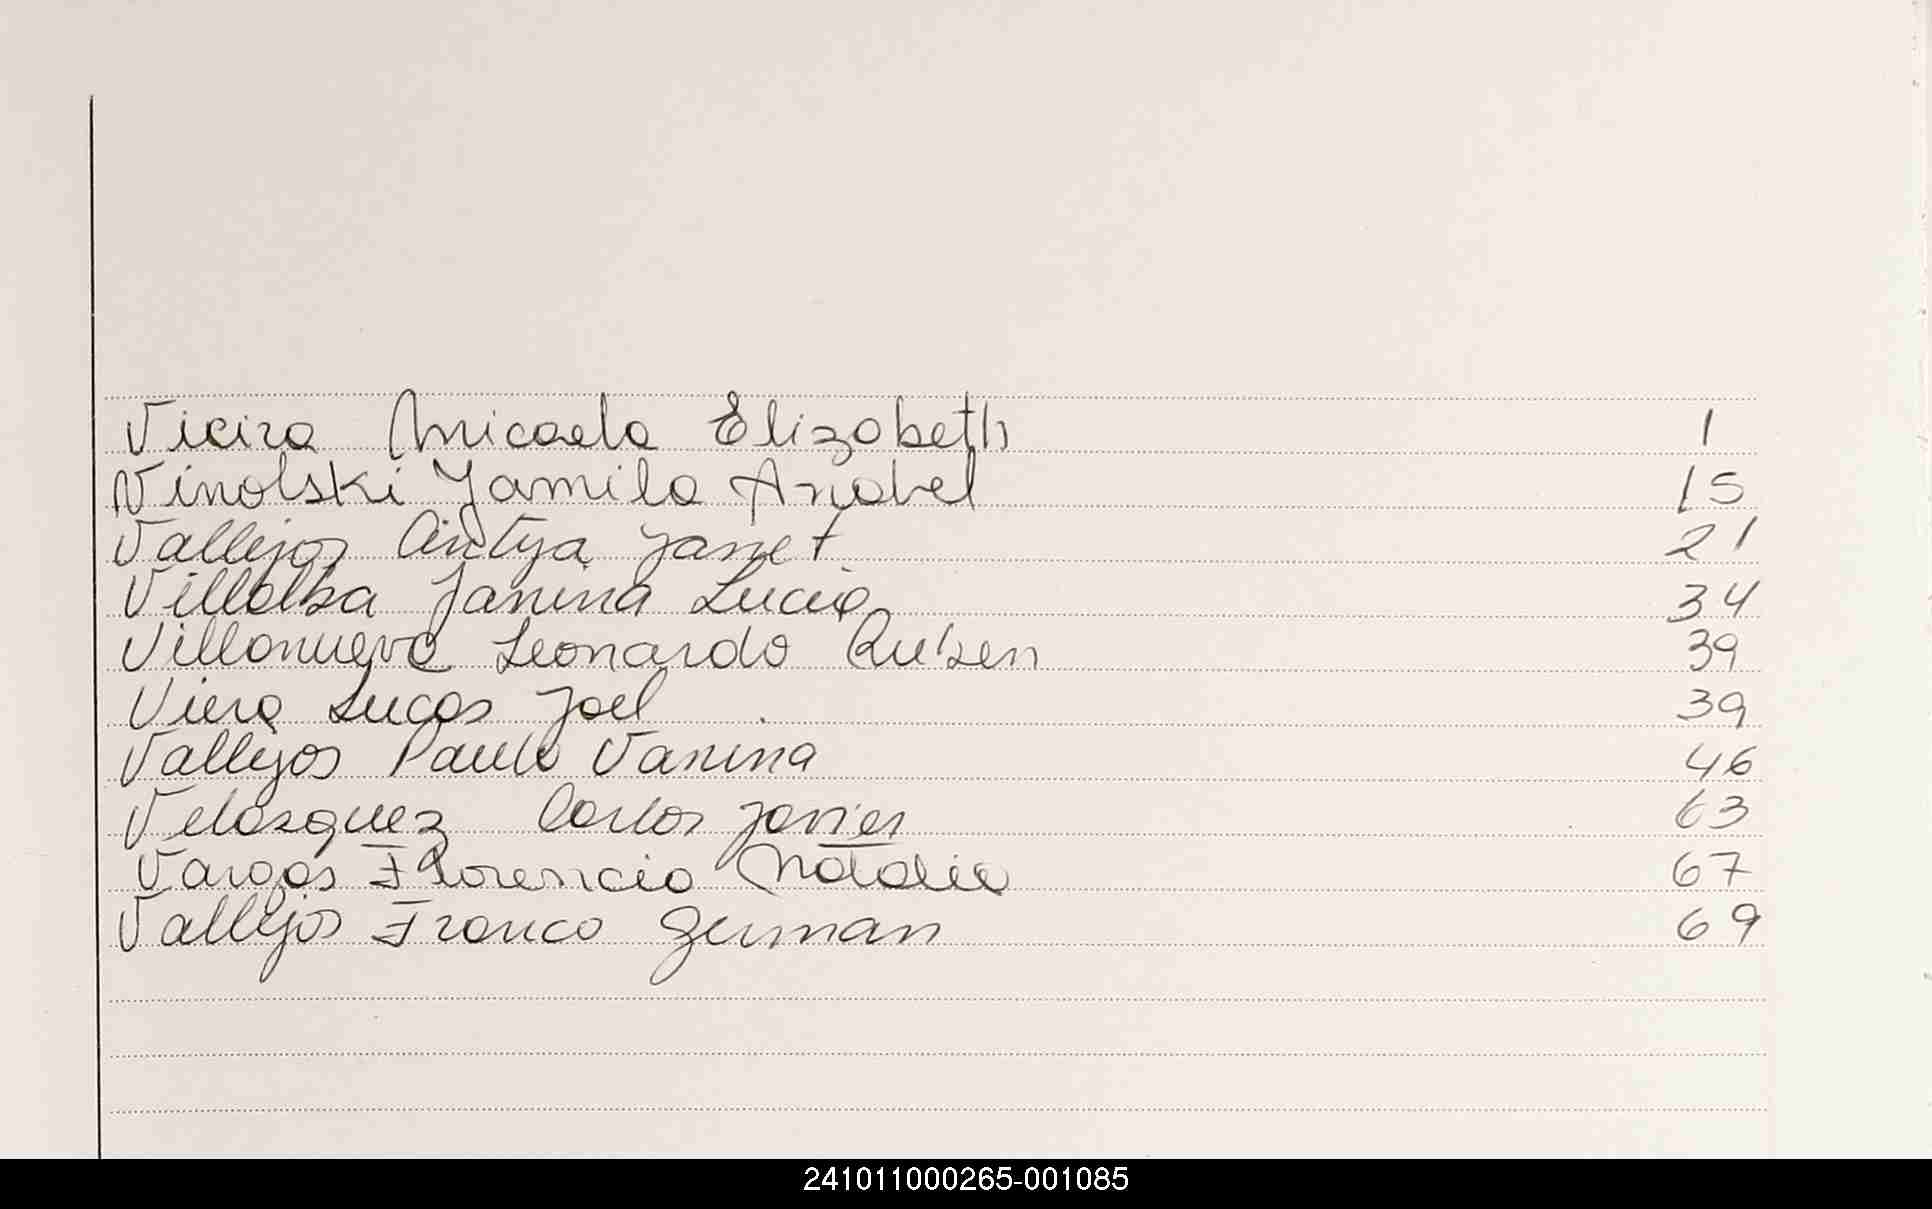 Vieira Micaela Elizabeth 1
Vinolski Yamila Anabel 15
Vallejos Cintya Janet 21
Villalba Janina Lucia 34
Villanueva Leonardo Ruben 39
Viera Lucas Joel 39
Vallejos Paula Vanina 46
Velasquez Carlos Javier 63
Vargas Florencia Natalia 67
Vallejos Franco German 69
241011000265-001085